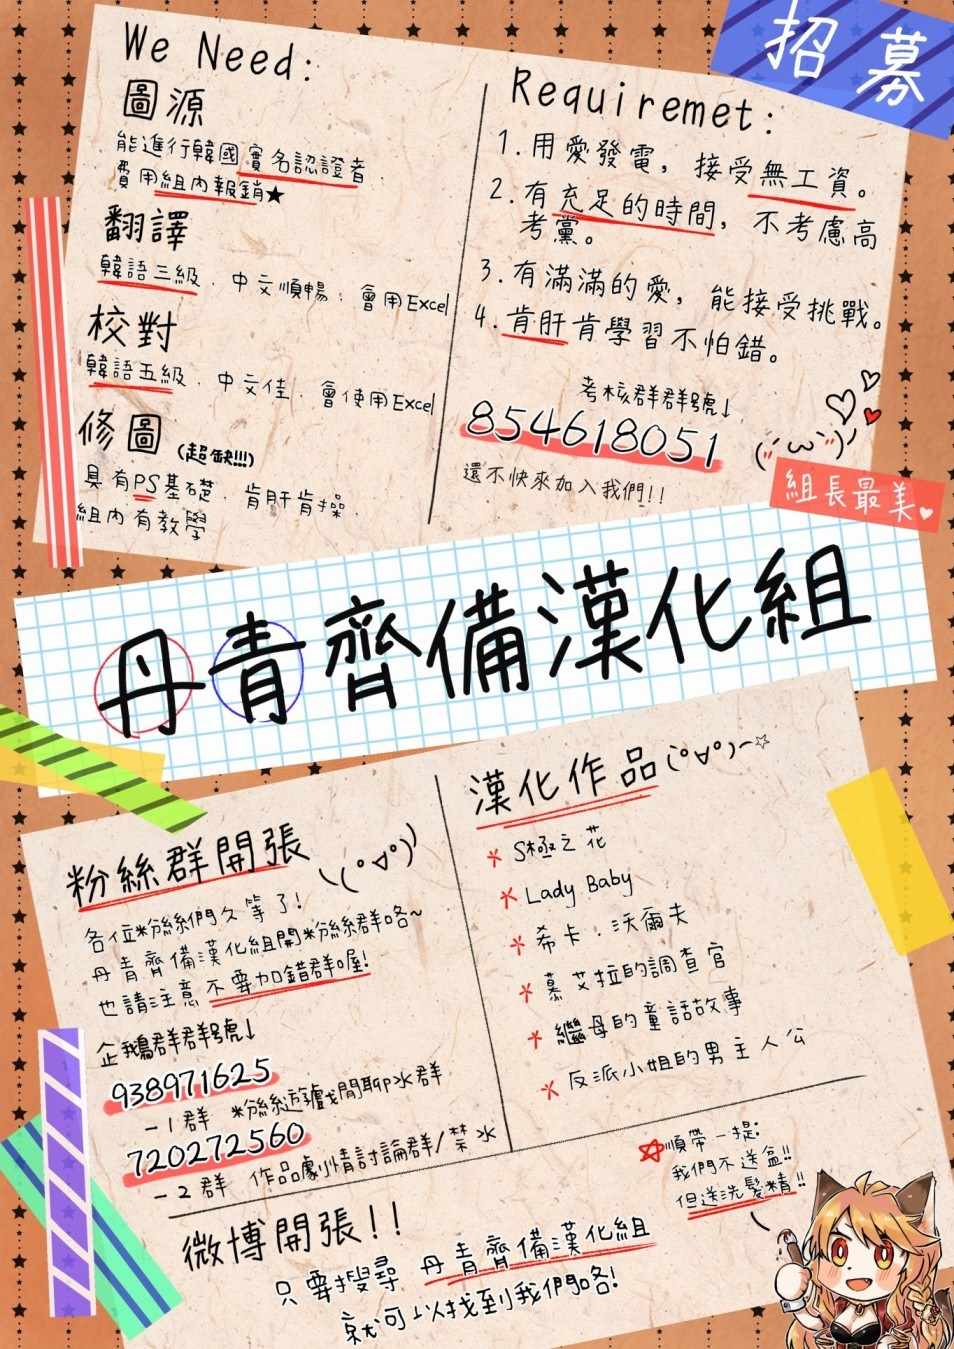 招募
We Need:
圖源
能進行韓國實名認證者.
費用組內報銷★
翻譯
韓語三級. 中文順暢. 會用Excel
校對
韓語五級. 中文佳. 會使用Excel
修圖 (超缺!!!)
具有PS基礎. 肯肝肯操.
組內有教學
Requiremet:
1.用愛發電, 接受無工資。
2.有充足的時間, 不考慮高
考黨。
3.有滿滿的愛, 能接受挑戰。
4.肯肝肯學習不怕錯。
考核群群號↓
854618051
還不快來加入我們!!
組長最美♥
丹青齊備漢化組
粉絲群開張
各位粉絲們久等了!
丹青齊備漢化組開粉絲群咯~
也請注意不要加錯群喔!
企鵝群群號↓
938971625
-1群 粉絲遊戲閒聊水群
720272560
-2群 作品劇情討論群/禁水
漢化作品(°∀°)~☆
* S極之花
* Lady Baby
* 希卡.沃爾夫
* 慕艾拉的調查官
* 繼母的童話故事
* 反派小姐的男主人公
☆順帶一提:
我們不送盒!!
但送洗髮精!!
微博開張!!
只要搜尋 丹青齊備漢化組
就可以找到我們咯!